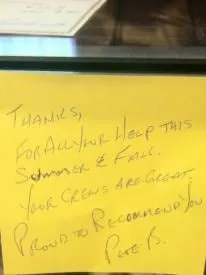 THANKS,
FOR ALL YOUR HELP THIS
SUMMER & FALL.
YOUR CREWS ARE GREAT.
PROUD TO RECOMMEND YOU
PETE B.